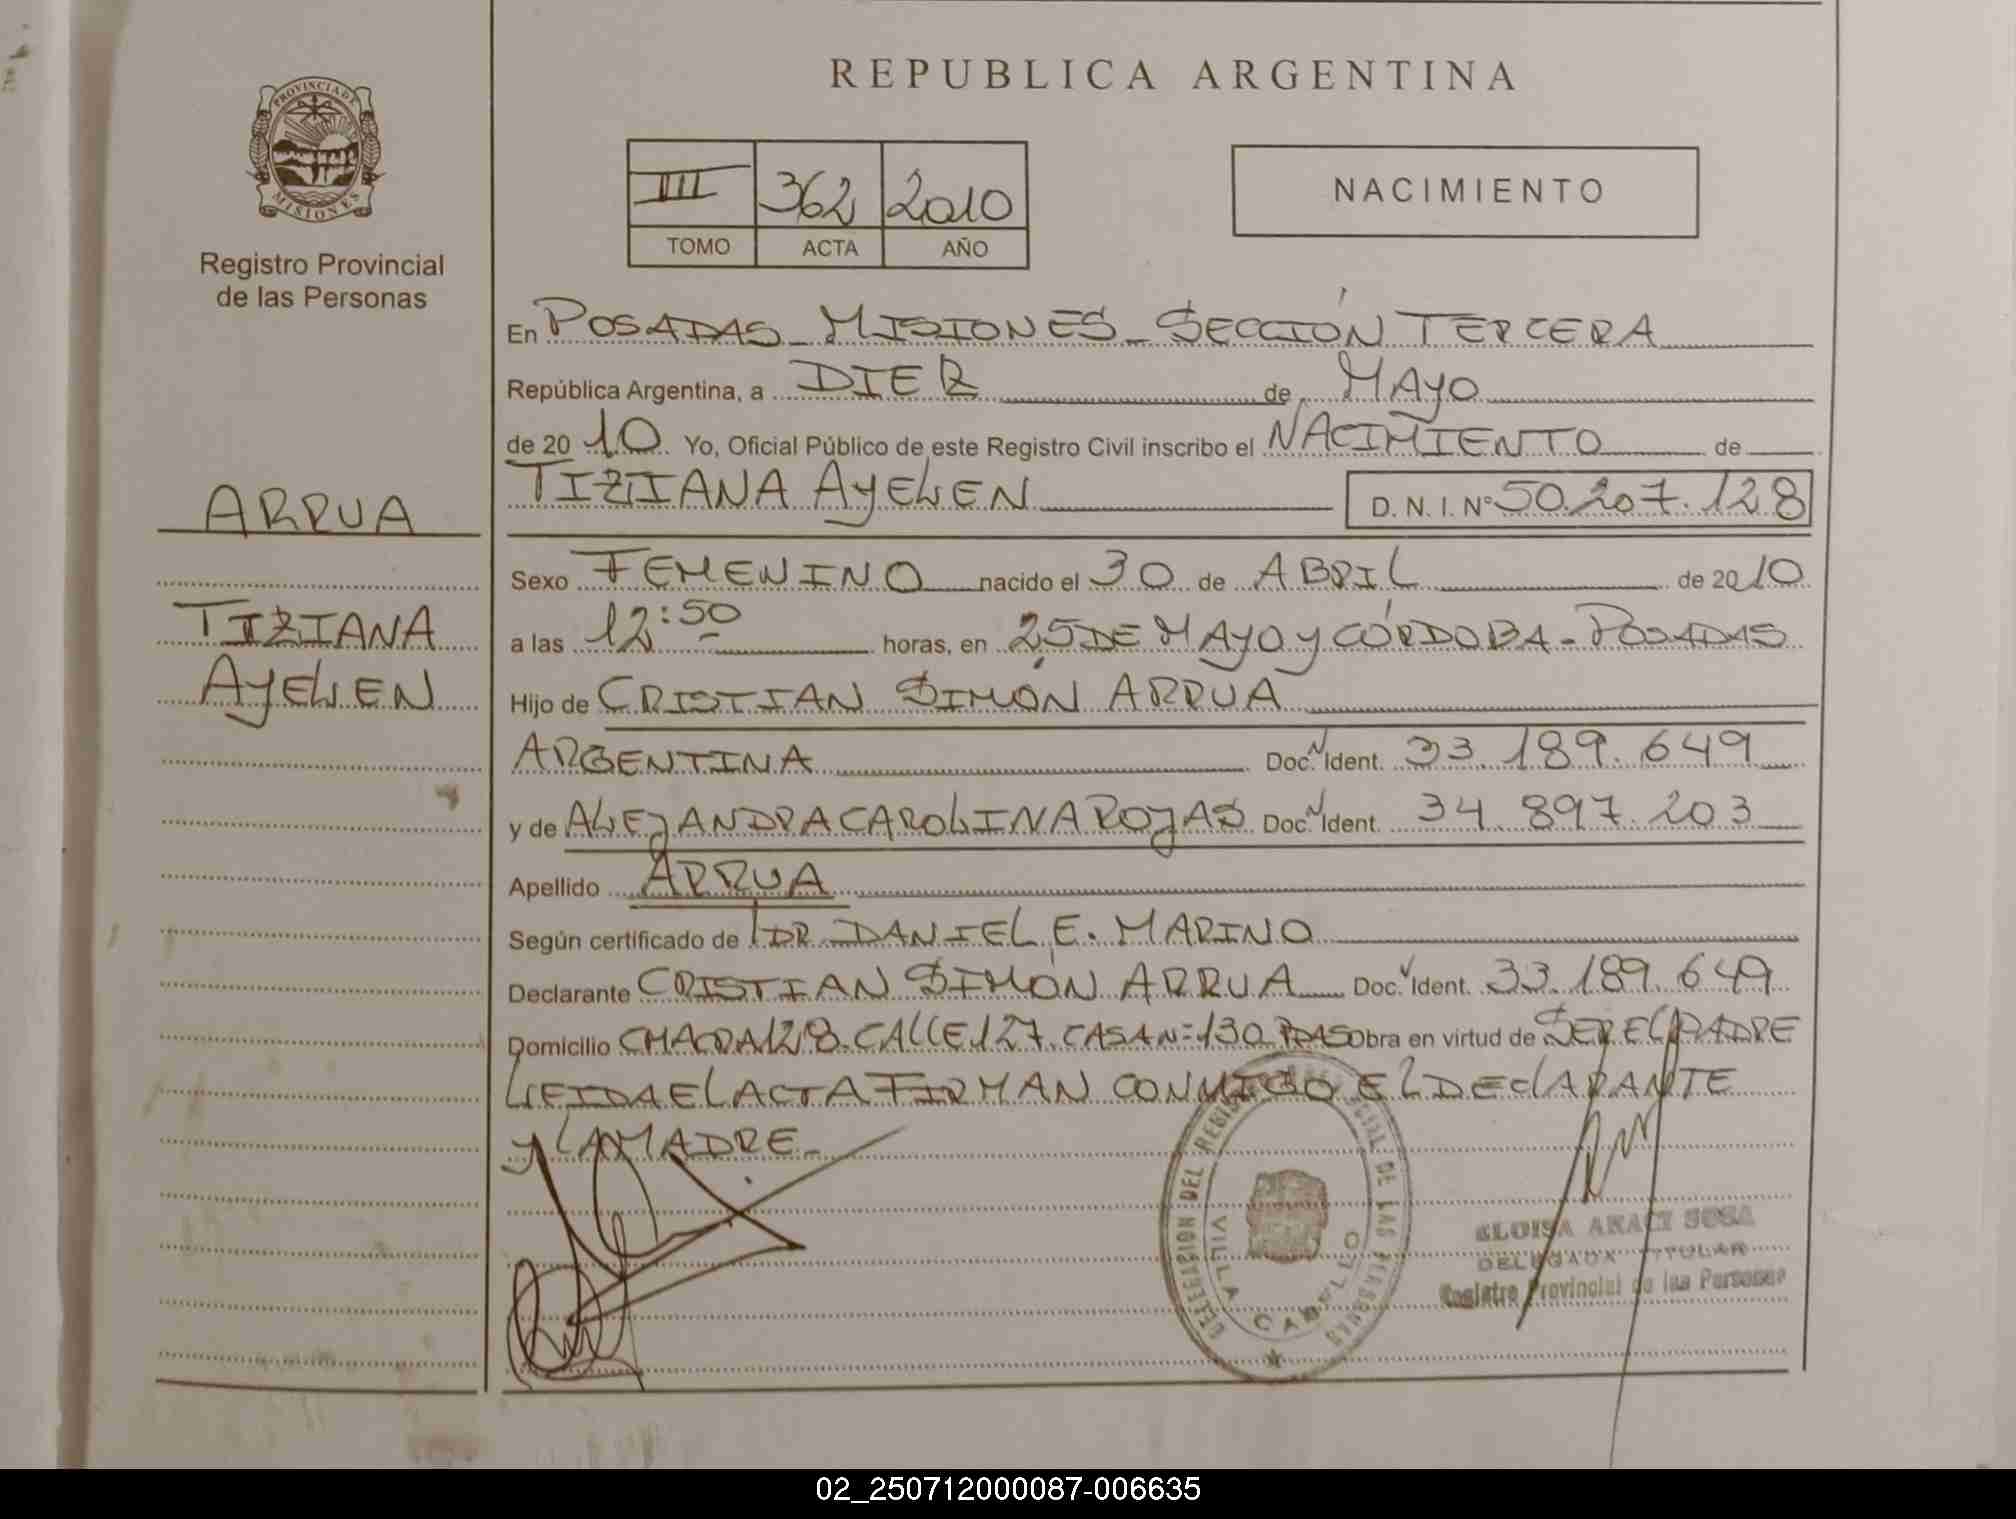 REPUBLICA ARGENTINA
PROVINCIA DE
MISIONES
Registro Provincial
de las Personas
III 362 2010
TOMO ACTA AÑO
NACIMIENTO
En POSADAS - MISIONES - SECCIÓN TERCERA
República Argentina, a DIEZ de MAYO
de 20 10 Yo, Oficial Público de este Registro Civil inscribo el NACIMIENTO de
TIZIANA AYELEN D. N. I. Nº 50.207.128
ARRUA
TIZIANA
AYELEN
Sexo FEMENINO nacido el 30 de ABRIL de 20 10
a las 12:50 horas, en 25 DE MAYO y CÓRDOBA - POSADAS
Hijo de CRISTIAN SIMÓN ARRUA
ARGENTINA Doc. Ident. 33.189.649
y de ALEJANDRA CAROLINA ROJAS Doc. Ident. 34.897.203
Apellido ARRUA
Según certificado de DR. DANIEL E. MARINO
Declarante CRISTIAN SIMÓN ARRUA Doc. Ident. 33.189.649
Domicilio CHACRA 128. CALLE 127. CASA N= 130 PDAS Obra en virtud de SER EL PADRE
LEIDA EL ACTA FIRMAN CONMIGO EL DECLARANTE
y LA MADRE.-
DELEGACION DEL REGISTRO PROVINCIAL DE LAS PERSONAS
VILLA CABELLO
ELOISA ARACI SOSA
DELEGADA TITULAR
Registro Provincial de las Personas
02_250712000087-006635